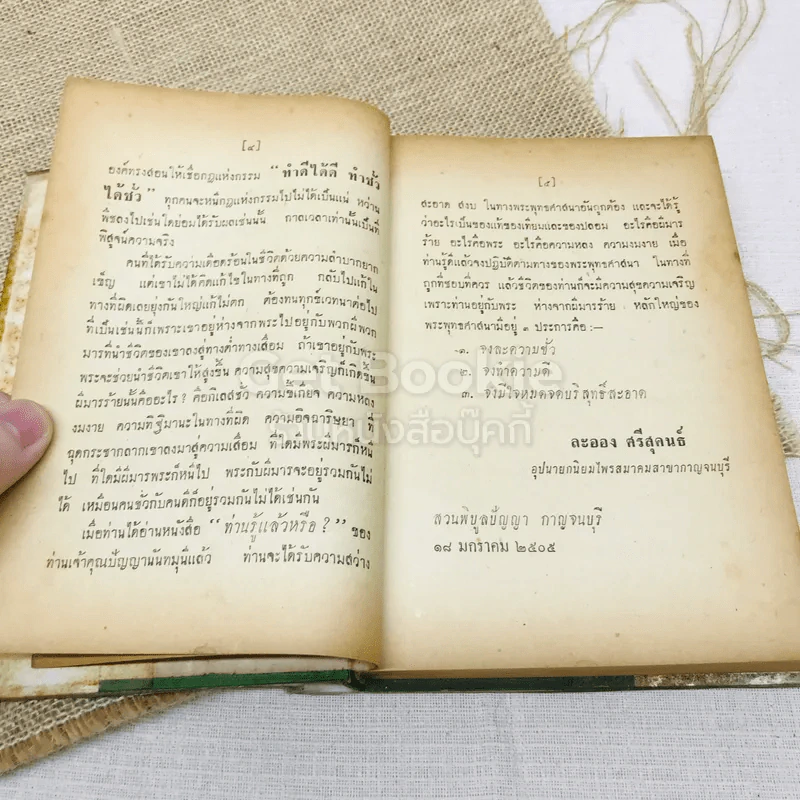 [๔]
องค์ทรงสอนให้เชื่อกฎแห่งกรรม "ทำดีได้ดี ทำชั่ว
ได้ชั่ว" ทุกคนจะหนีกฎแห่งกรรมไปไม่ได้เป็นแน่ หว่าน
พืชลงไปเช่นใดย่อมได้รับผลเช่นนั้น กาลเวลาเท่านั้นเป็นที่
พิสูจน์ความจริง
คนที่ได้รับความเดือดร้อนในชีวิตด้วยความลำบากยาก
เข็ญ แต่เขาไม่ได้คิดแก้ไขในทางที่ถูก กลับไปแก้ใน
ทางที่ผิดเลยยุ่งกันใหญ่แก้ไม่ตก ต้องทนทุกข์เวทนาต่อไป
ที่เป็นเช่นนั้นก็เพราะเขาอยู่ห่างจากพระไปอยู่กับพวกผีพวก
มารที่นำชีวิตของเขาลงสู่ทางต่ำทางเสื่อม ถ้าเขาอยู่กับพระ
พระจะช่วยนำชีวิตเขาให้สูงขึ้น ความสุขความเจริญก็เกิดขึ้น
ผีมารร้ายนั้นคืออะไร? คือกิเลสชั่ว ความขี้เกียจ ความหลง
งมงาย ความทิฐิมานะในทางที่ผิด ความอิจฉาริษยา ที่
ฉุดกระชากลากเขาลงมาสู่ความเสื่อม ที่ใดมีพระผีมารก็หนี
ไป ที่ใดมีผีมารพระก็หนีไป พระกับผีมารจะอยู่รวมกันไม่
ได้ เหมือนคนชั่วกับคนดีก็อยู่รวมกันไม่ได้เช่นกัน
เมื่อท่านได้อ่านหนังสือ "ท่านรู้แล้วหรือ?" ของ
ท่านเจ้าคุณปัญญานันทมุนีแล้ว ท่านจะได้รับความสว่าง
[๕]
สะอาด สงบ ในทางพระพุทธศาสนาอันถูกต้อง และจะได้รู้
ว่าอะไรเป็นของแท้ของเทียมและของปลอม อะไรคือผีมาร
ร้าย อะไรคือพระ อะไรคือความหลง ความงมงาย เมื่อ
ท่านรู้ดีแล้วจงปฏิบัติตามทางของพระพุทธศาสนา ในทางที่
ถูกที่ชอบที่ควร แล้วชีวิตของท่านก็จะมีความสุขความเจริญ
เพราะท่านอยู่กับพระ ห่างจากผีมารร้าย หลักใหญ่ของ
พระพุทธศาสนามีอยู่ ๓ ประการคือ :—
๑. จงละความชั่ว
๒. จงทำความดี
๓. จงมีใจหมดจดบริสุทธิ์สะอาด
ละออง ศรีสุคนธ์
อุปนายกนิยมไพรสมาคมสาขากาญจนบุรี
สวนพิบูลปัญญา กาญจนบุรี
๑๘ มกราคม ๒๕๐๕
Get Bookie
ร้านหนังสือบุ๊คกี้